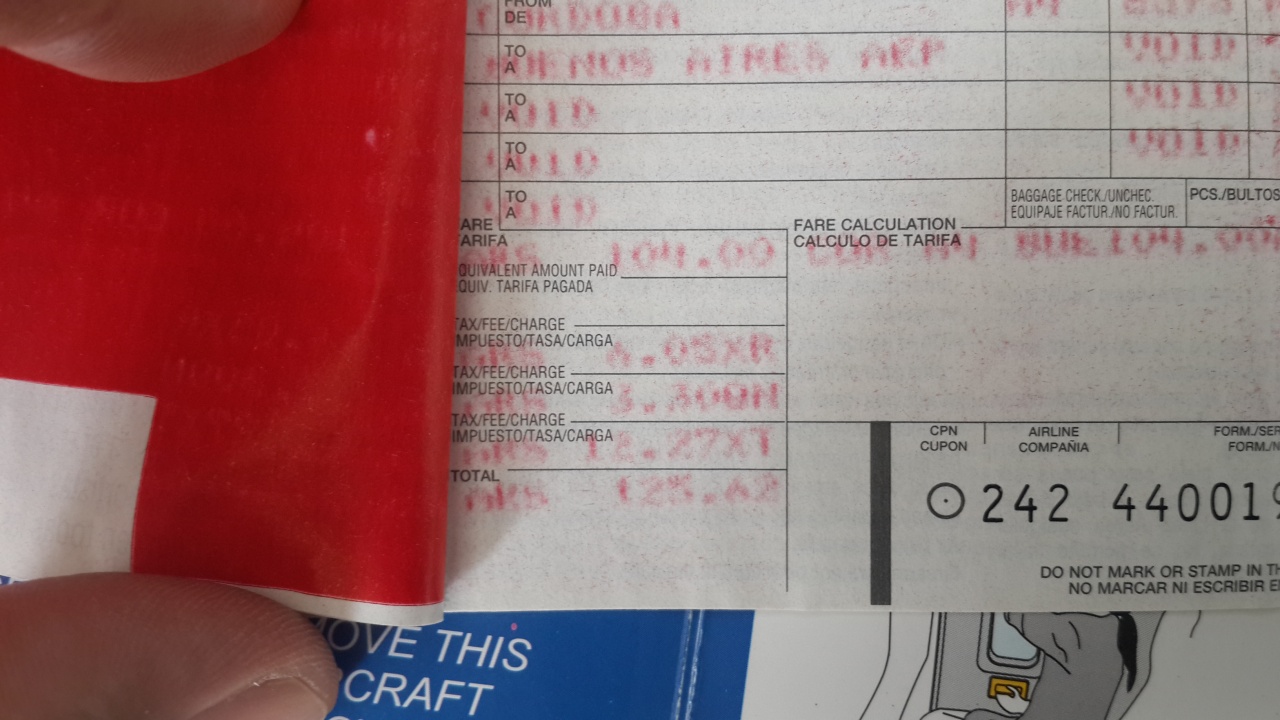 FROM
DE
CORDOBA
TO
A
BUENOS AIRES AEP
VOID
TO
A
VOID
VOID
TO
A
VOID
VOID
TO
A
VOID
BAGGAGE CHECK./UNCHEC.
EQUIPAJE FACTUR./NO FACTUR.
PCS./BULTOS
ARE
ARIFA
ARS 104.00
FARE CALCULATION
CALCULO DE TARIFA
COR AN BUE104.00
QUIVALENT AMOUNT PAID
QUIV. TARIFA PAGADA
TAX/FEE/CHARGE
IMPUESTO/TASA/CARGA
ARS 6.05XR
TAX/FEE/CHARGE
IMPUESTO/TASA/CARGA
ARS 3.30QN
TAX/FEE/CHARGE
IMPUESTO/TASA/CARGA
ARS 12.27XT
TOTAL
ARS 125.62
CPN
CUPON
AIRLINE
COMPAÑIA
FORM./SER
FORM./N
242 440019
DO NOT MARK OR STAMP IN TH
NO MARCAR NI ESCRIBIR E
OVE THIS
CRAFT